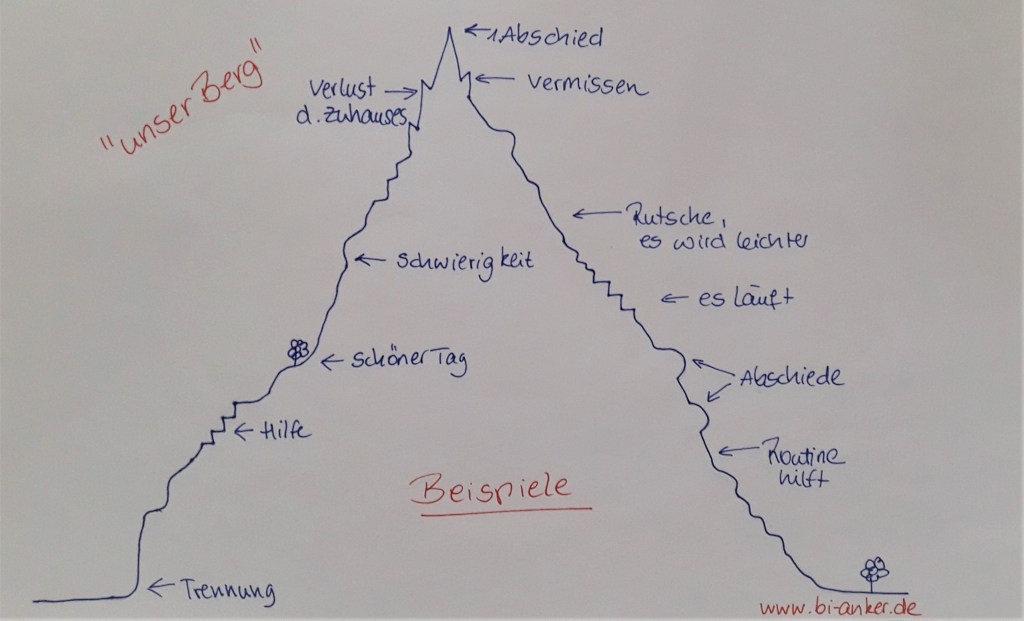 "unser Berg"
1. Abschied
Verlust
d. Zuhauses
Vermissen
Rutsche,
es wird leichter
Schwierigkeit
es läuft
Schöner Tag
Abschiede
Hilfe
Routine
hilft
Beispiele
Trennung
www.bi-anker.de